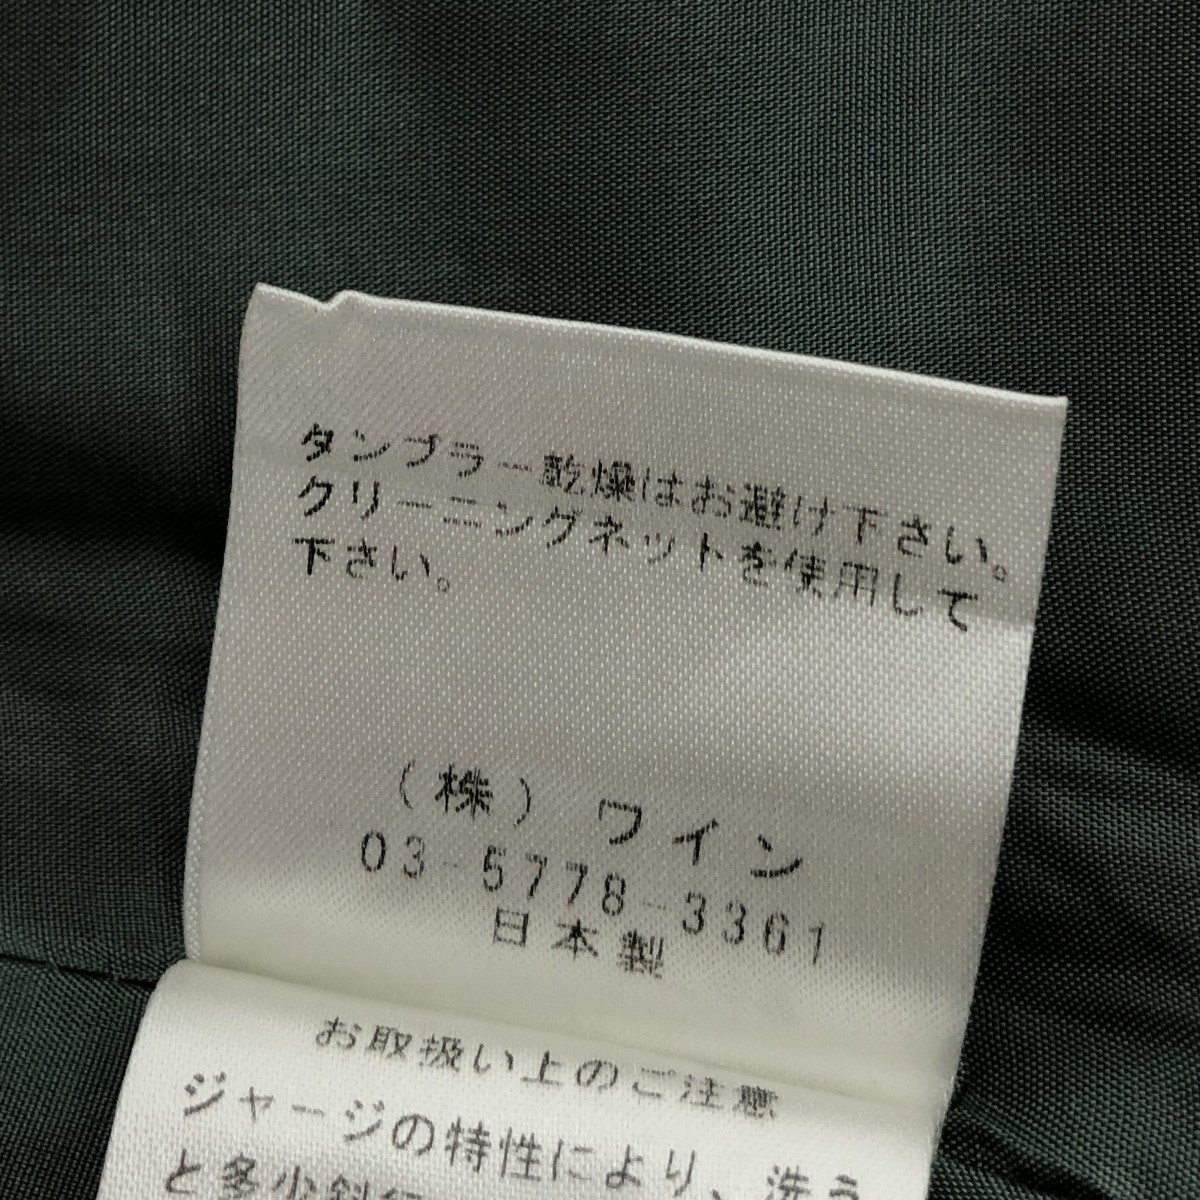 タンブラー乾燥はお避け下さい。
クリーニングネットを使用して
下さい。
（株）ワイン
03-5778-3361
日本製
お取扱い上のご注意
ジャージの特性により、洗う
と多少斜行